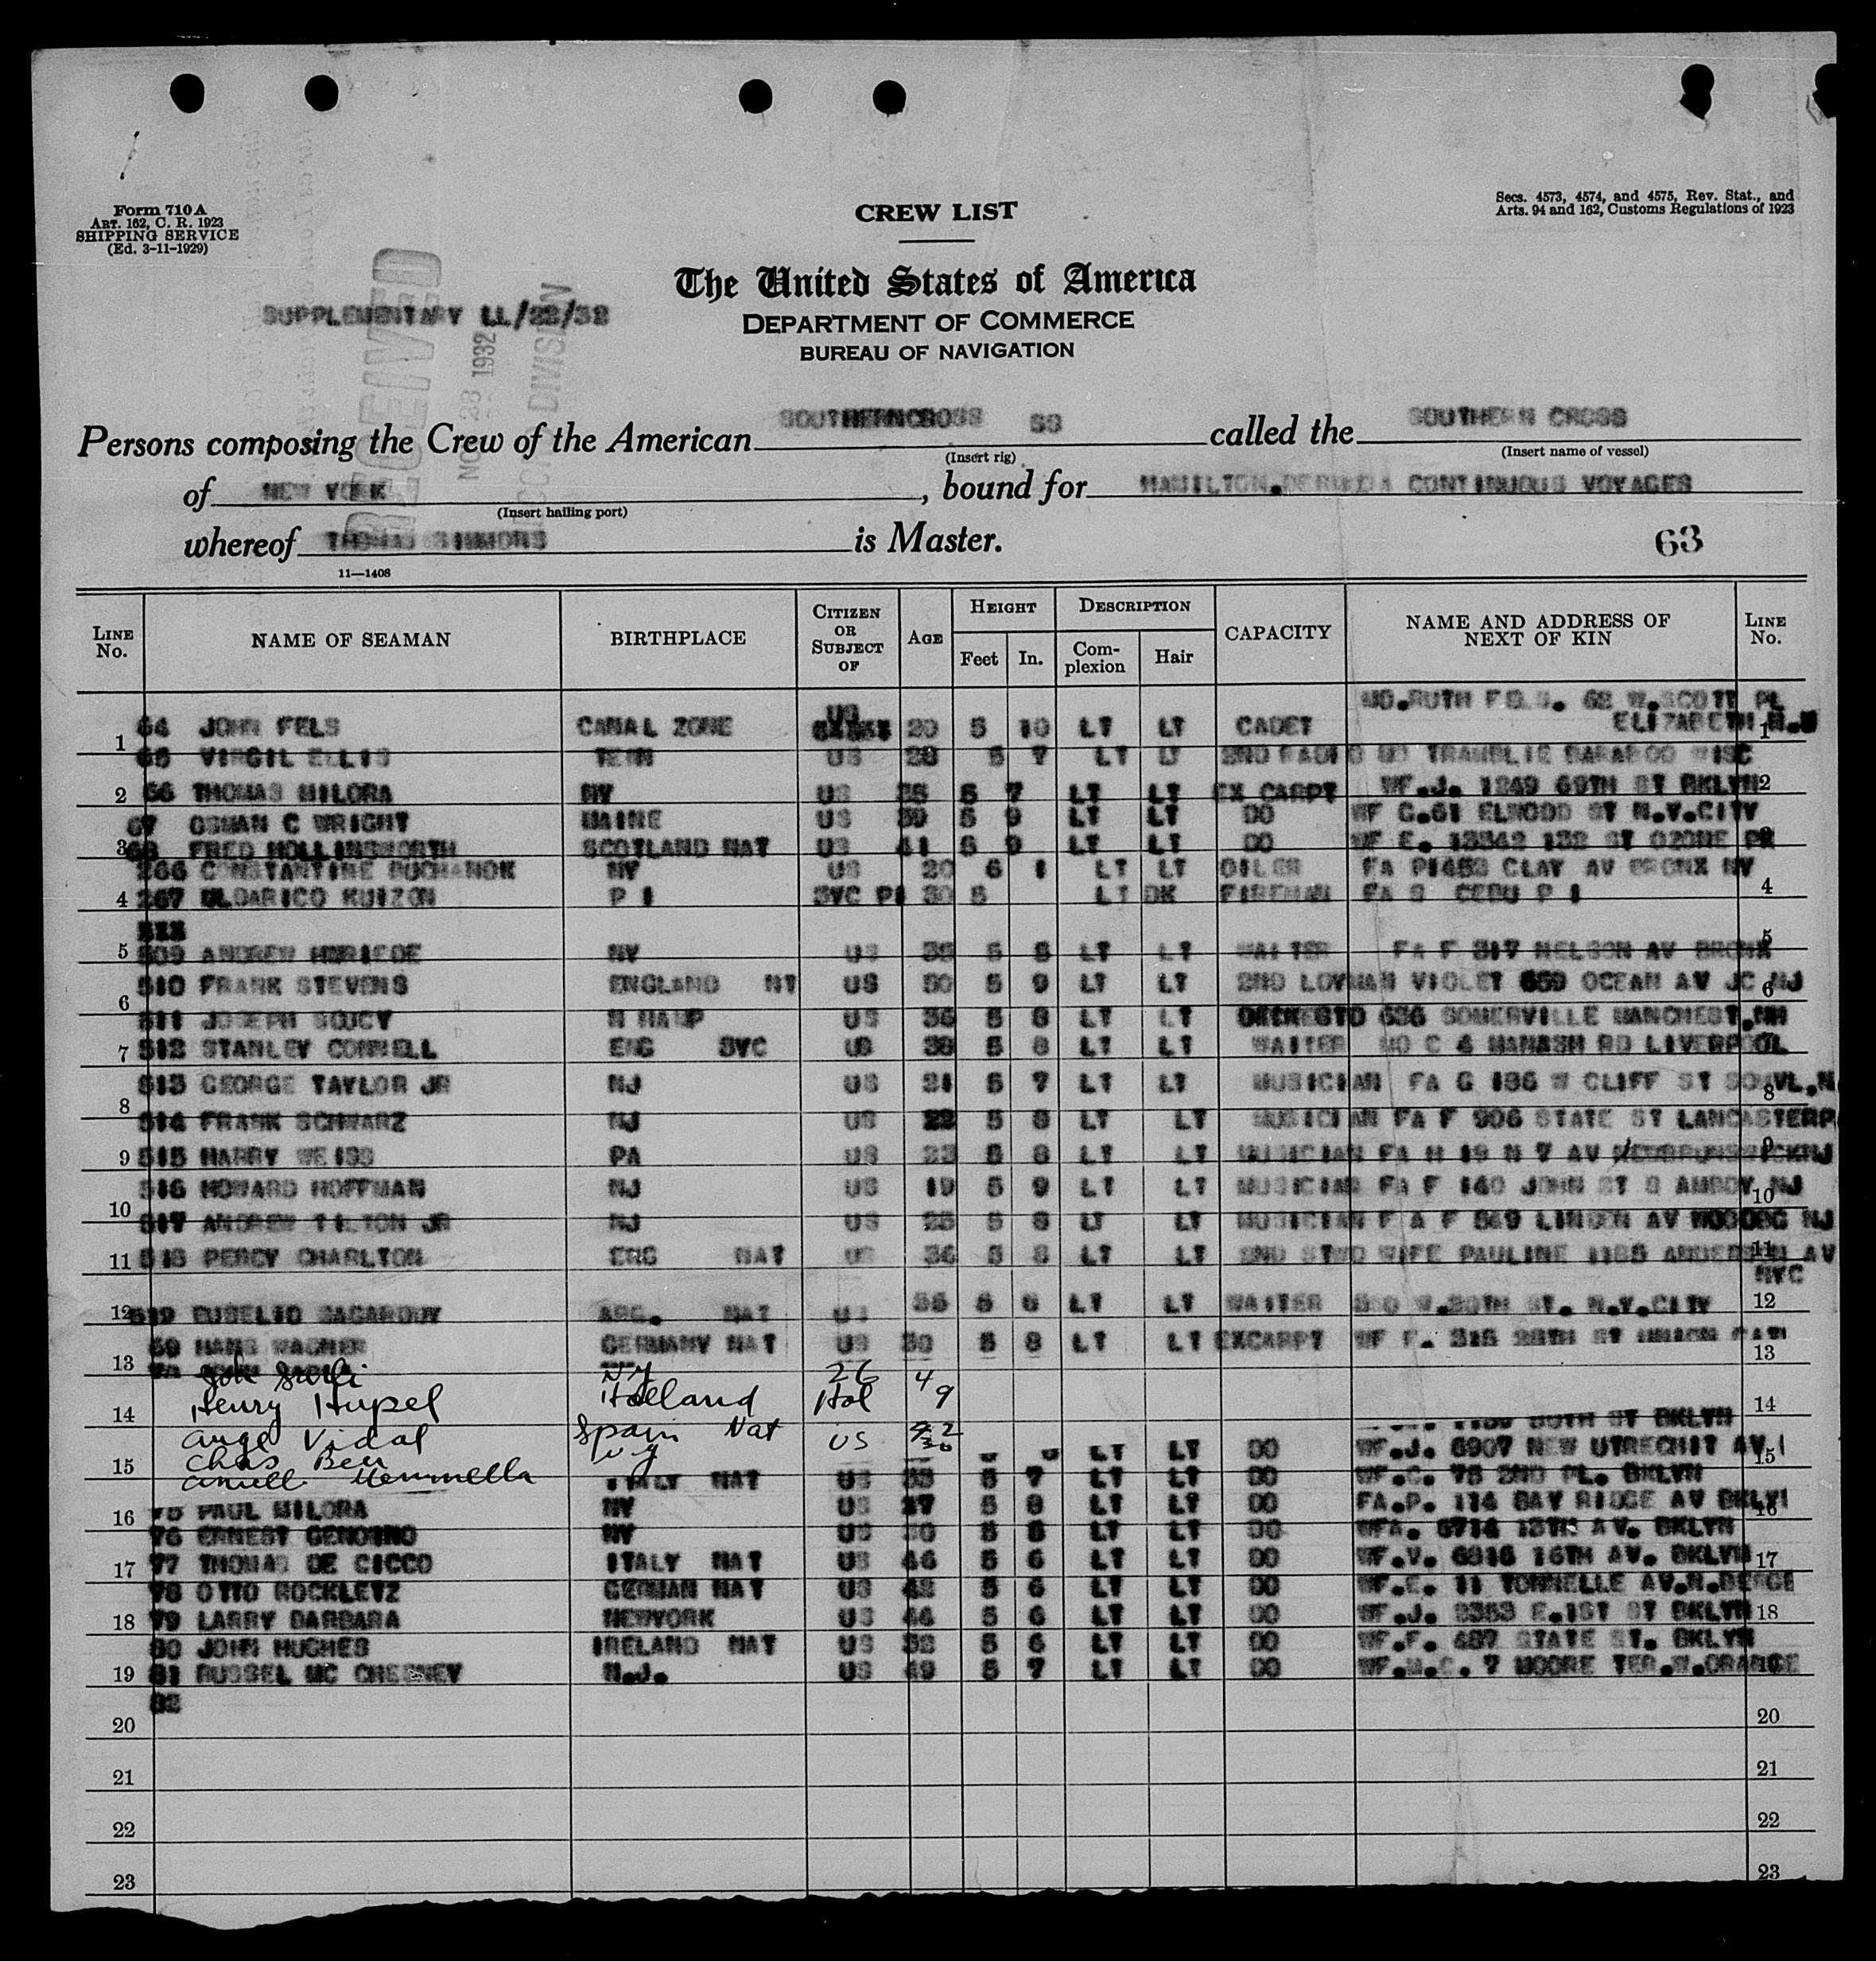 Form 710A
ART. 162, C. R. 1923
SHIPPING SERVICE
(Ed. 3-11-1929)
CREW LIST
Secs. 4573, 4574, and 4575, Rev. Stat., and
Arts. 94 and 162, Customs Regulations of 1923
The United States of America
DEPARTMENT OF COMMERCE
BUREAU OF NAVIGATION
SUPPLEMENTARY LL/22/32
RECEIVED
1932
DIVISION
Persons composing the Crew of the American SOUTHERNCROSS SS called the SOUTHERN CROSS
(Insert rig) (Insert name of vessel)
of NEW YORK, bound for HAMILTON.BERMUDA CONTINUOUS VOYAGES
(Insert hailing port)
whereof THOMAS SIMMONS is Master.
63
11—1408
LINE No. NAME OF SEAMAN BIRTHPLACE CITIZEN OR SUBJECT OF AGE HEIGHT Feet In. DESCRIPTION Complexion Hair CAPACITY NAME AND ADDRESS OF NEXT OF KIN LINE No.
MO.RUTH 62 W.SCOTT PL
1 64 JOHN FELS CANAL ZONE US 20 5 10 LT LT CADET ELIZABETH N.J 1
65 VIRGIL ELLIS TENN US 28 5 7 LT LT 2ND RADIO WISC
2 66 THOMAS MILORA NY US 5 7 LT LT EX CARPT WF.J. 1249 69TH ST BKLYN 2
67 OSMAN C WRIGHT MAINE US 39 5 9 LT LT DO WF C.61 ELWOOD ST N.Y.CITY
3 68 FRED HOLLINGSWORTH SCOTLAND NAT US 41 5 9 LT LT DO WF E. 13342 132 ST OZONE PK 3
266 CONSTANTINE BOCHANOK NY US 20 6 1 LT LT OILER FA P1453 CLAY AV BRONX NY
4 267 ULDARICO KUIZON P I SVC PI 30 5 LT DK FIREMAN FA S CEBU P I 4
5 509 ANDREW US 5 8 LT LT WAITER FA F 317 NELSON AV BRONX 5
6 510 FRANK STEVENS ENGLAND NT US 30 5 9 LT LT 2ND LOYMAN VIOLET 659 OCEAN AV JC NJ 6
511 JOSEPH SOUCY N HAMP US 36 5 8 LT LT 636 SOMERVILLE MANCHEST.NH
7 512 STANLEY CONNELL ENG SVC US 38 5 8 LT LT WAITER MO C 4 RD LIVERPOOL 7
513 GEORGE TAYLOR JR NJ US 21 5 7 LT LT MUSICIAN FA G 136 W CLIFF ST SOMVL.N
8 514 FRANK SCHWARZ NJ US 22 5 8 LT LT MUSICIAN FA F 906 STATE ST LANCASTERP 8
9 515 HARRY WEISS PA US 23 5 8 LT LT MUSICIAN FA H 19 N 7 AV NEWBRUNSWICKNJ 9
516 HOWARD HOFFMAN NJ US 19 5 9 LT LT MUSICIAN FA F 140 JOHN ST S AMBOY NJ
10 517 ANDREW TILTON JR NJ US 25 5 8 LT LT MUSICIAN F A F 549 LINDEN AV NJ 10
11 518 PERCY CHARLTON ENG NAT US 36 5 8 LT LT 2ND STWD WIFE PAULINE 1185 ANDERSON AV NYC 11
12 519 EUSELIO ARG. NAT US 35 5 6 LT LT WAITER W.20TH ST. N.Y.CITY 12
13 69 HANS WAGNER GERMANY NAT US 30 5 8 LT LT EXCARPT WF F. 28TH ST UNION 13
NY 26
14 Henry Hupel Holland Hol 49 ST BKLYN 14
Angel Vidal Spain Nat US
15 Chas NY LT LT DO WF.J. 6907 NEW UTRECHT AV 15
ITALY NAT US 33 5 7 LT LT DO WF.C. 78 2ND PL. BKLYN
16 75 PAUL MILORA NY US 27 5 8 LT LT DO FA.P. 114 BAY RIDGE AV BKLYN 16
76 ERNEST GENOSINO NY US 30 5 8 LT LT DO WFA. 6714 13TH AV. BKLYN
17 77 THOMAS DE CICCO ITALY NAT US 46 5 6 LT LT DO WF.V. 6816 16TH AV. BKLYN 17
78 OTTO ROCKLETZ GERMAN NAT US 42 5 6 LT LT DO WF.E. 11 TONNELLE AV.N.BERGE
18 79 LARRY BARBARA NEWYORK US 44 5 6 LT LT DO WF.J. 2353 E.1ST ST BKLYN 18
80 JOHN HUGHES IRELAND NAT US 38 5 6 LT LT DO WF.F. 487 STATE ST. BKLYN
19 81 RUSSEL MC CHESNEY N.J. US 49 5 7 LT LT DO WF.M.C. 7 MOORE TER.W.ORANGE 19
82
20 20
21 21
22 22
23 23